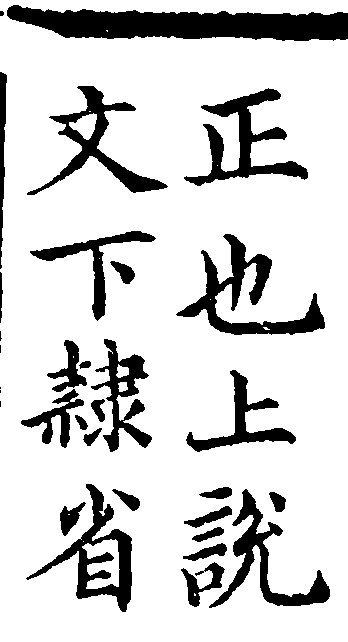 正也上說
文下隸省